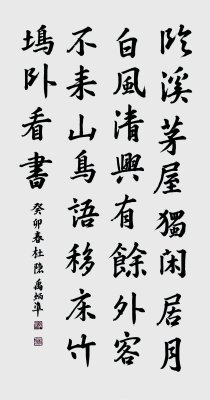 臨溪茅屋獨閑居月
白風清興有餘外客
不来山鳥語移床竹
塢卧看書
癸卯春杜隱禹炳準